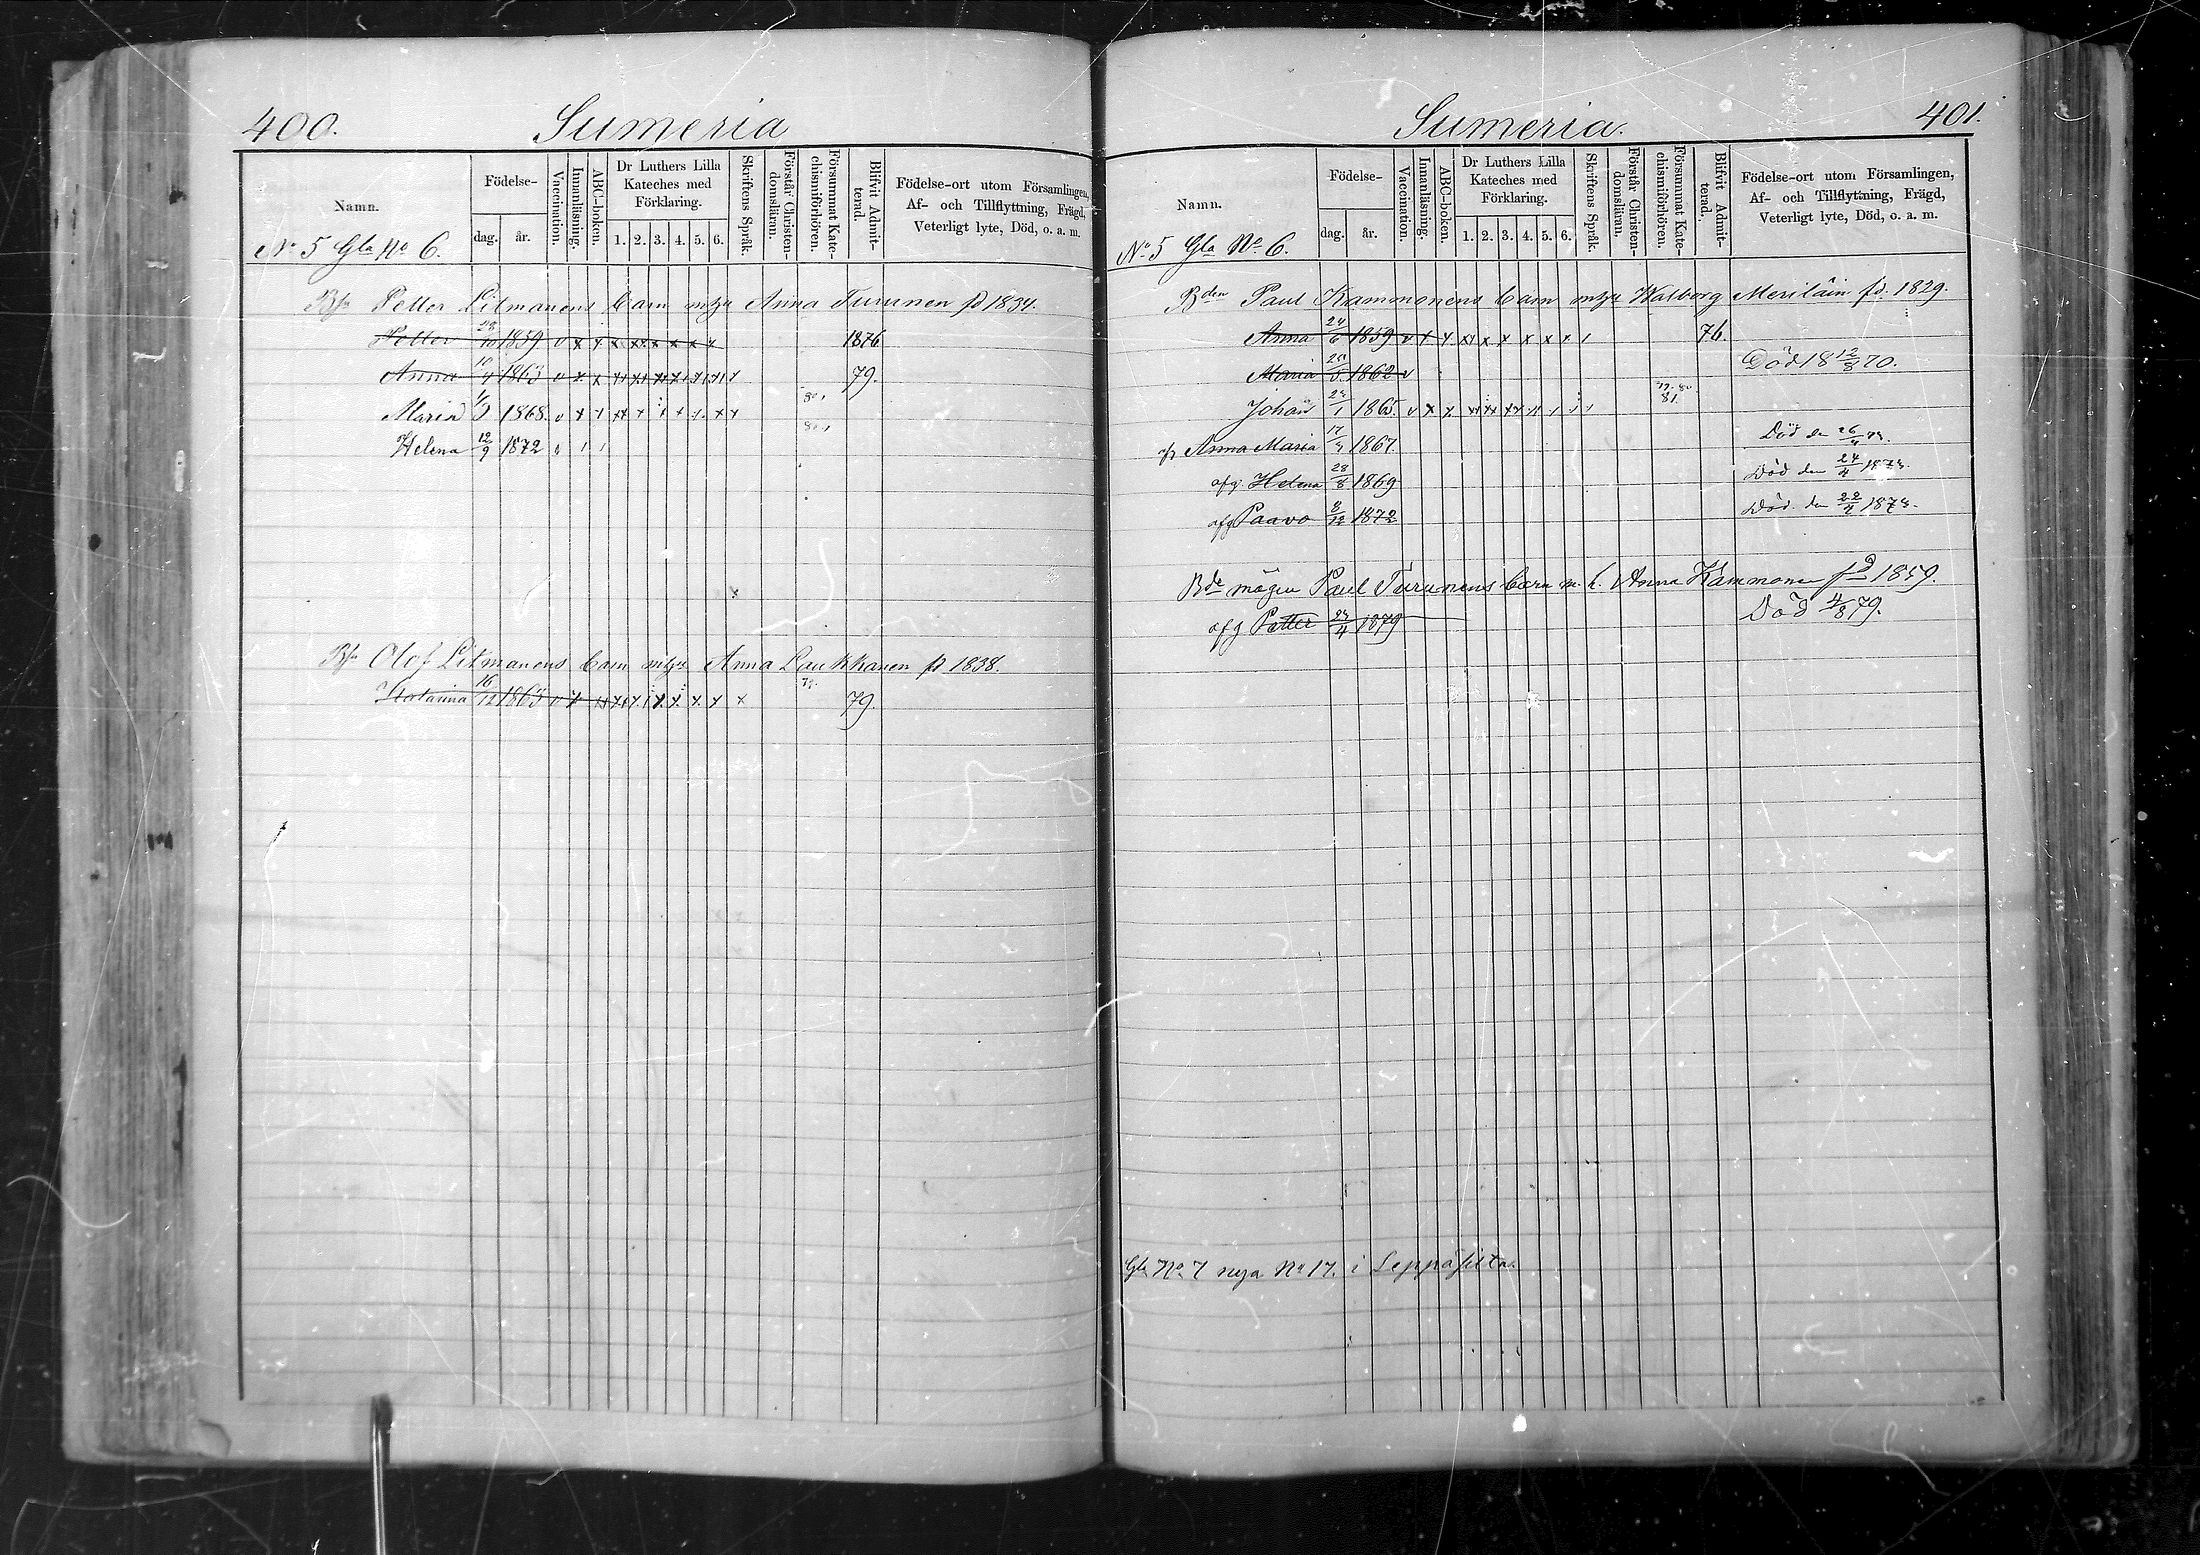 400.
Sumeria
Namn.
Födelse-
dag.
år.
Vaccination.
Innanläsning.
ABC-boken.
Dr Luthers Lilla
Kateches med
Förklaring.
1. 2. 3. 4. 5. 6.
Skriftens Språk.
Förstår Christen-
domsläran.
Försummat Kate-
chismiförhören.
Blifvit Admit-
terad.
Födelse-ort utom Församlingen,
Af- och Tillflyttning, Frägd,
Veterligt lyte, Död, o. a. m.
No 5 Gla No 6.
Petter Litmanens barn Anna Turunen fd 1834.
Petter 1859 1876
Anna 1863 79.
Maria 1868.
Helena 12/9 1872
Olof Litmanens barn Anna Laukkanen fd 1838.
Katarina 16/12 1863 79.
401.
Sumeria.
Namn.
Födelse-
dag.
år.
Vaccination.
Innanläsning.
ABC-boken.
Dr Luthers Lilla
Kateches med
Förklaring.
1. 2. 3. 4. 5. 6.
Skriftens Språk.
Förstår Christen-
domsläran.
Försummat Kate-
chismiförhören.
Blifvit Admit-
terad.
Födelse-ort utom Församlingen,
Af- och Tillflyttning, Frägd,
Veterligt lyte, Död, o. a. m.
No 5 Gla No 6.
Bden Paul Kammonens barn Walborg Meriläin fd. 1829.
Anna 24/6 1859 76.
Maria 1862 Död 18 12/8 70.
Johan 1865 81.
Anna Maria 1867. Död den 26/4
afg. Helena 28/8 1869 Död den 24/4 1873.
afg Paavo 8/12 1872 Död. den 22/4 1873.
Bde mågen Paul Turunens barn m. h. Anna Kammonen fd 1859.
afg Petter 1879 Död 4/8 79.
Gla No 7 nya No 17. i Leppäsilta.